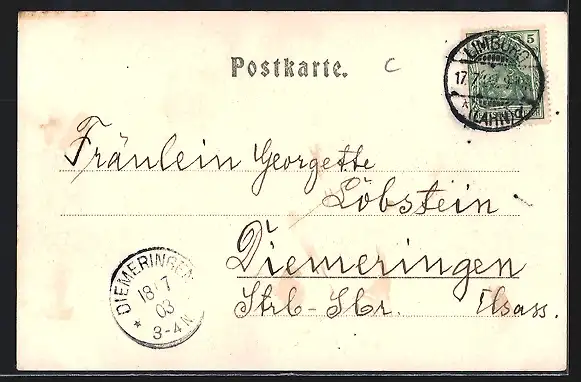 Postkarte. C
5
LIMBURG
17.7
(LAHN)
Fräulein Georgette
Löbstein
Diemeringen
Strb-Sbr. Elsass.
DIEMERINGEN
18 7
03
* 3-4 N